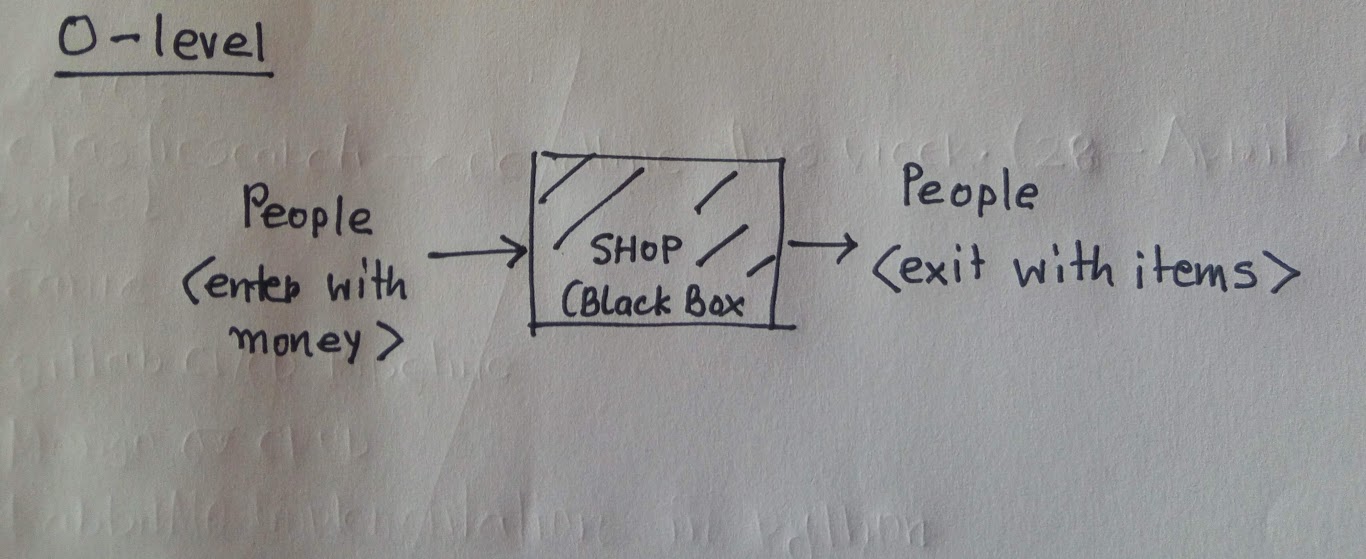 O-level
People
<enter with
money>
SHOP
(Black Box
People
<exit with items>